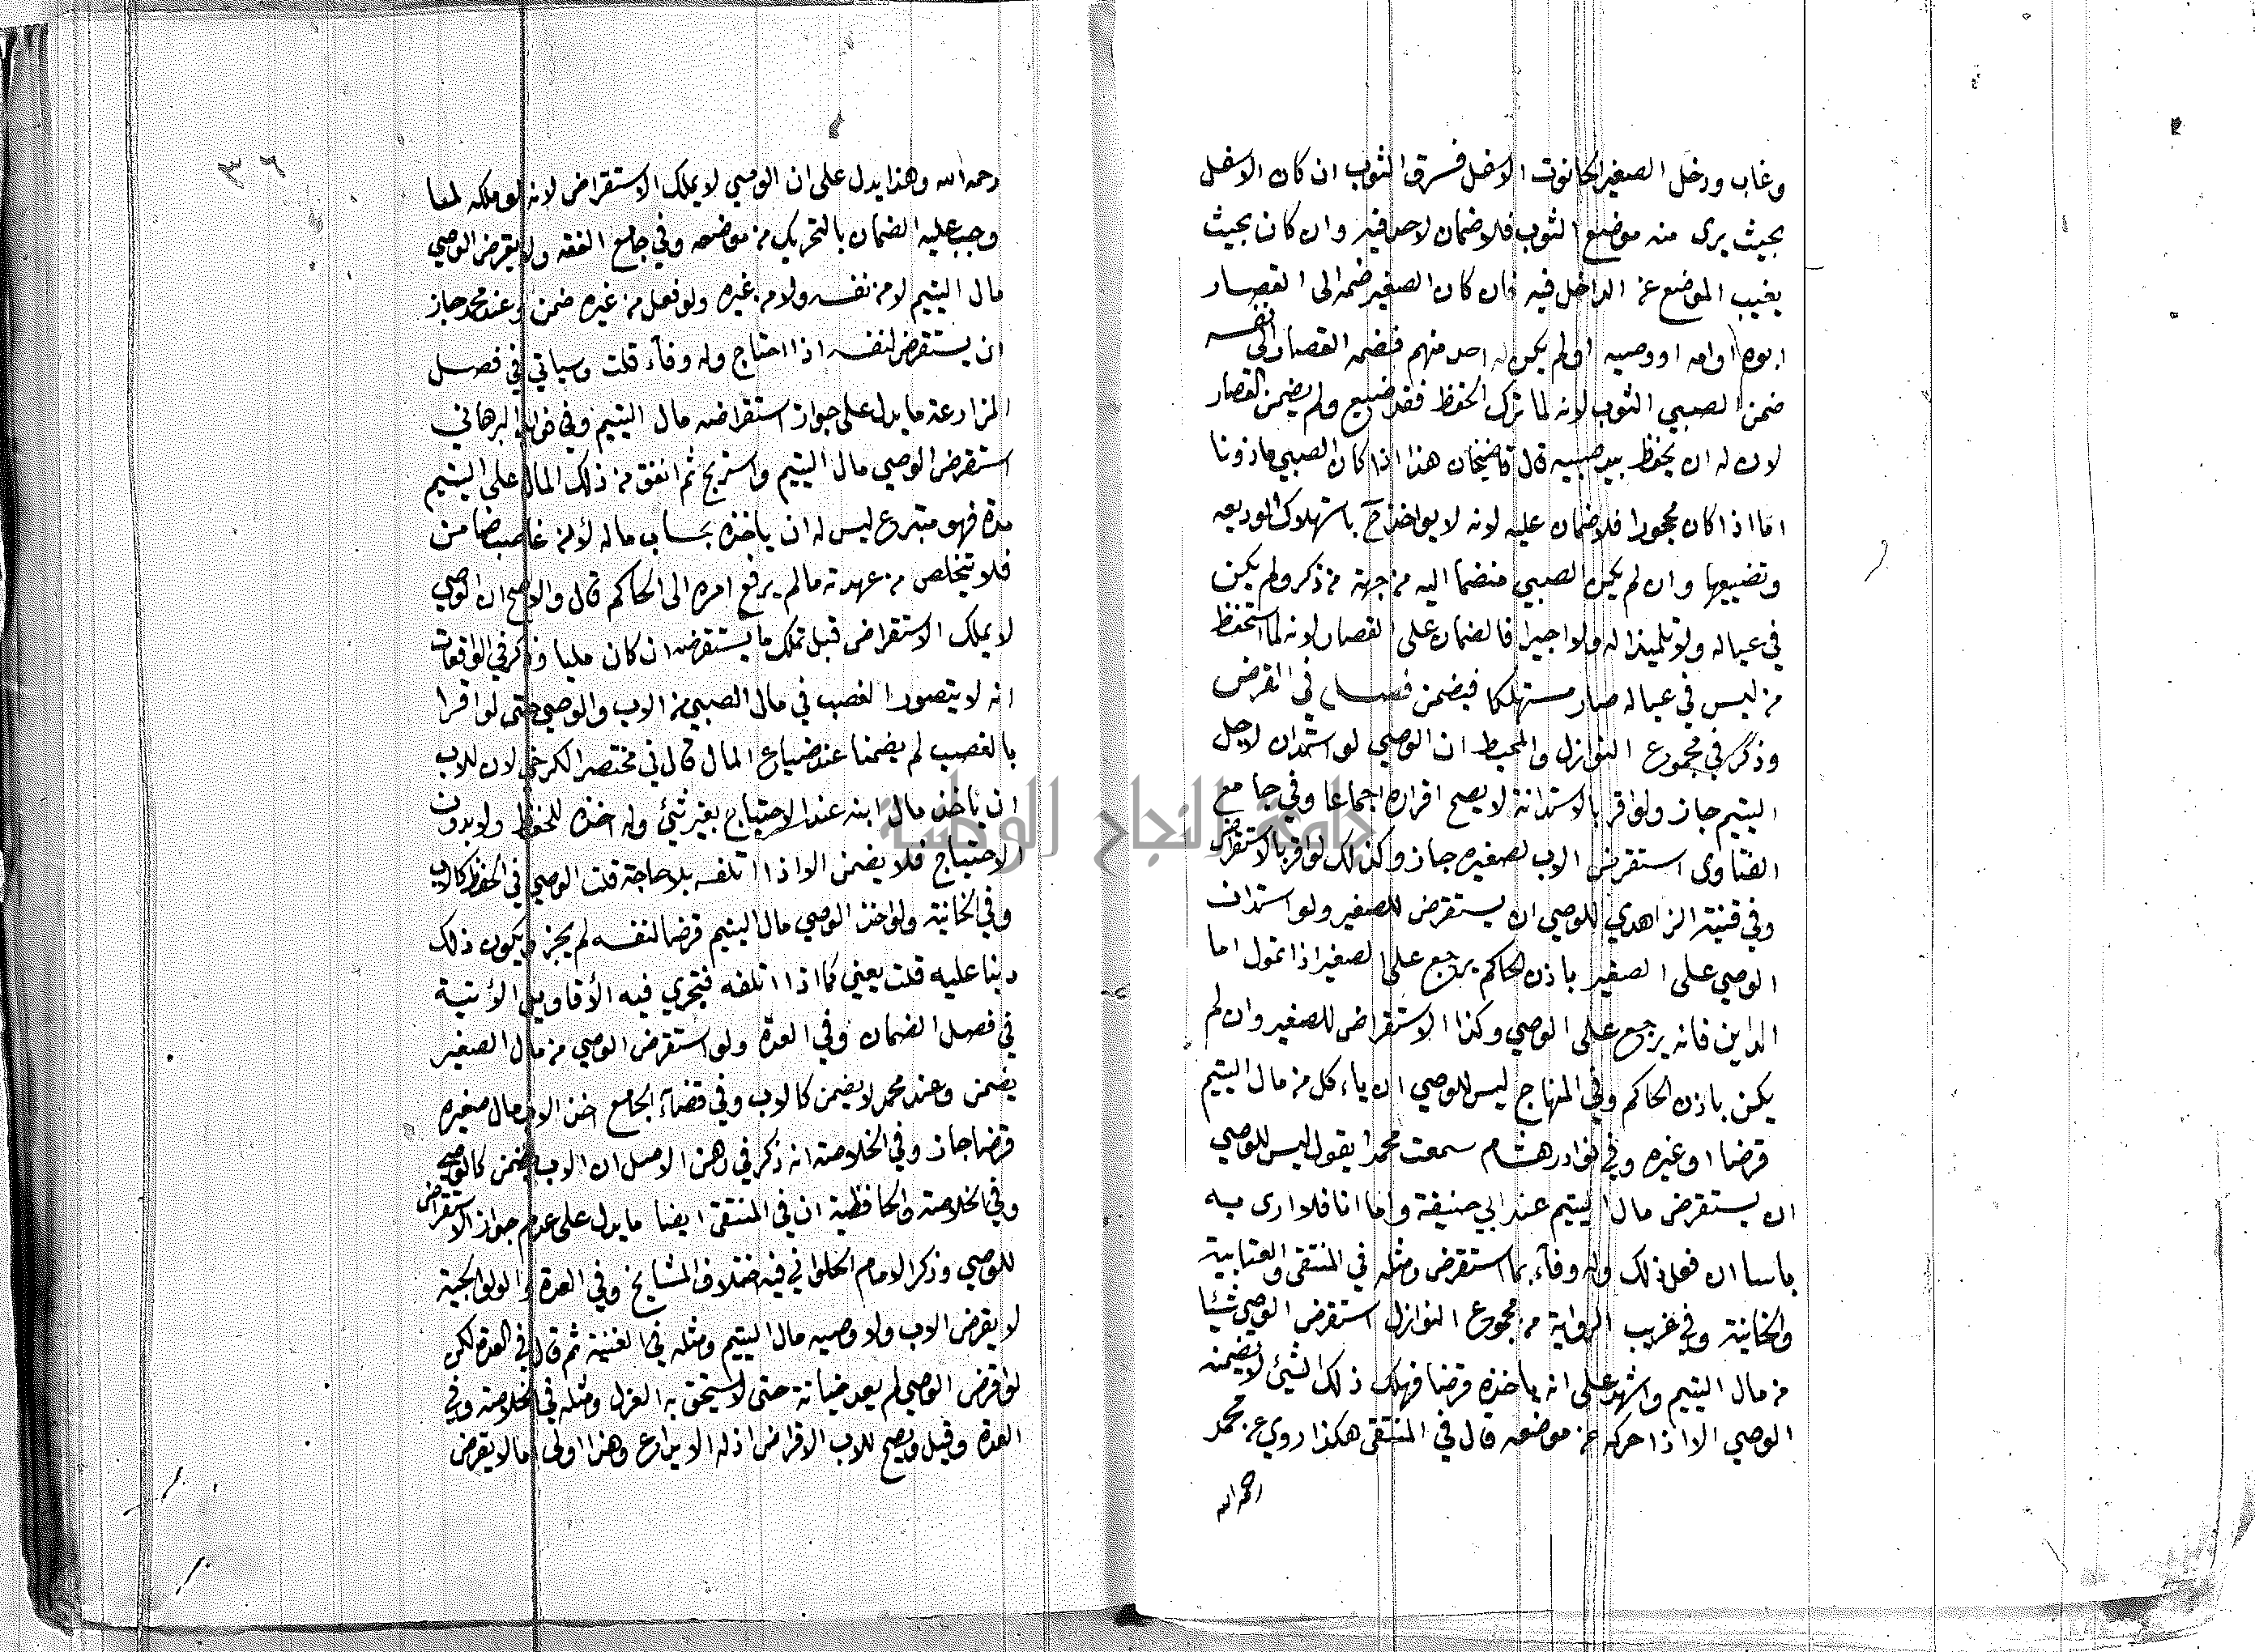 وغاب ودخل الصغير الحانوت الاسفل فسرق الثوب ان كان الاسفل
بحيث يرى منه موضع الثوب فلا ضمان لاحد فيه وان كان بحيث
يغيب الموضع عن الداخل فيه فان كان الصغير ضمه الى القصار
ابوه او امه او وصيه او لم يكن له احد منهم فضمه القصار الى نفسه
ضمن الصبي الثوب لانه لما ترك الحفظ فقد ضيع ولم يضمن القصار
لان له ان يحفظ بيد صبيه قال قاضيخان هذا اذا كان الصبي ماذونا
اما اذا كان محجورا فلا ضمان عليه لانه لا يواخذ ح باستهلاك الوديعه
وتضييعها وان لم يكن الصبي منضما اليه من جهة من ذكر ولم يكن
في عياله ولا تلميذا له ولا اجيرا فالضمان على القصار لانه لما استحفظ
من ليس في عياله صار مستهلكا فيضمن فصل في القرض
وذكر في مجموع النوازل والمحيط ان الوصي لو استدان لاجل
اليتيم جاز ولو اقر بالاستدانة لا يصح اقراره اجماعا وفي جامع
الفتاوى استقرض الاب لصغيره جاز وكذلك لو اقر بالاستقراض
وفي قنية الزاهدي للوصي ان يستقرض للصغير ولو استدان
الوصي على الصغير باذن الحاكم يرجع على الصغير اذا تمول اما
الداين فانه يرجع على الوصي وكذا الاستقراض للصغير وان لم
يكن باذن الحاكم وفي المنهاج ليس للوصي ان ياءكل من مال اليتيم
قرضا او غيره وفي نوادر هشام سمعت محمدا يقول ليس للوصي
ان يستقرض مال اليتيم عند ابي حنيفة واما انا فلا ارى به
باسا ان فعل ذلك وله وفآء بما استقرض ومثله في المنتقى والعتابية
والخانية وفي غريب الرواية من مجموع النوازل استقرض الوصي شيئا
من مال اليتيم واشهد على انه ياخذه قرضا فهلك ذلك الشيئ لا يضمنه
الوصي الا اذا حركه عن موضعه قال في المنتقى هكذا روي عن محمد
رحمه الله
٣٦
رحمه الله وهذا يدل على ان الوصي لا يملك الاستقراض لانه لو ملكه لما
وجب عليه الضمان بالتحريك من موضعه وفي جامع الفقه ولا يقرض الوصي
مال اليتيم لا من نفسه ولا من غيره ولو فعل من غيره ضمن وعند محمد جاز
ان يستقرض لنفسه اذا احتاج وله وفآء قلت وسياتي في فصل
المزارعة ما يدل على جواز استقراضه مال اليتيم وفي البرهاني
استقرض الوصي مال اليتيم واستربح ثم انفق من ذلك المال على اليتيم
مدة فهو متبرع ليس له ان ياخذه بحساب ماله لأنه غاصب ضامن
فلا يتخلص من عهدته ما لم يرفع امره الى الحاكم قال والاصح ان الوصي
لا يملك الاستقراض قبل تملك ما يستقرضه ان كان مليا وذكر في الواقعات
انه لا يتصور الغصب في مال الصبي من الاب والوصي حتى لو اقرا
بالغصب لم يضمنا عند ضياع المال قال في مختصر الكرخي لان للاب
ان ياخذ مال ابنه عند الاحتياج بغير شيئ وله اخذه للحفظ ولا بدون
الاحتياج فلا يضمن الا اذا اتلفه بلا حاجة قلت الوصي في الحفظ كالاب
وفي الخانية ولو اخذ الوصي مال اليتيم قرضا لنفسه لم يجز ويكون ذلك
دينا عليه قلت يعني كما اذا اتلفه فيجري فيه الأقاويل الأتية
في فصل الضمان وفي العدة ولو استقرض الوصي من مال الصغير
يضمن وعند محمد لا يضمن كالاب وفي قضآء الجامع اخذ الاب مال صغيره
قرضا جاز وفي الخلاصة انه ذكر في رهن الاصل ان الاب يضمن كالوصي
وفي الخلاصة والحافظية ان في المنتقى ايضا ما يدل على عدم جواز الاستقراض
للوصي وذكر الامام الحلواني فيه اختلاف المشايخ وفي العدة والولوالجية
لا يقرض الاب ولا وصيه مال اليتيم ومثله في الغنية ثم قال في العدة لكن
لو اقرض الوصي لم يعد خيانة حتى لا يستحق به العزل ومثله في الخلاصة وفي
العدة وقيل ويصح للاب الاقراض اذ له الايداع وهذا اولى ما لا يقرض